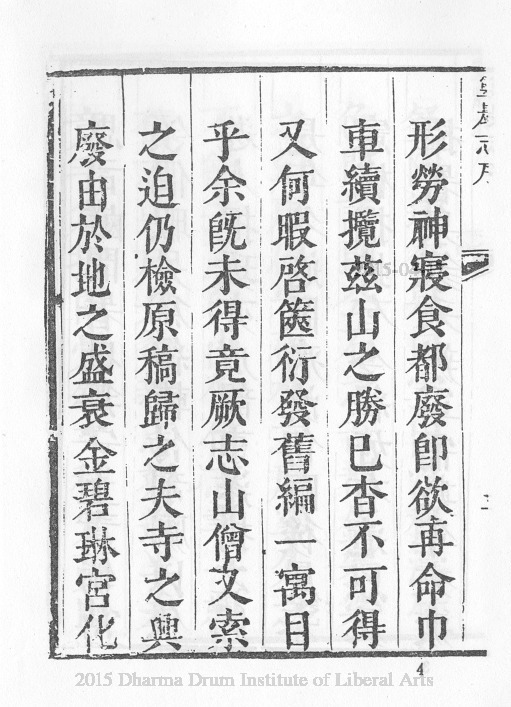 形勞神寢食都廢卽欲再命巾
車續攬茲山之勝已杳不可得
又何暇啓篋衍發舊編一寓目
乎余旣未得竟厥志山僧又索
之迫仍檢原稿歸之夫寺之興
廢由於地之盛衰金碧琳宮化
4
2015 Dharma Drum Institute of Liberal Arts